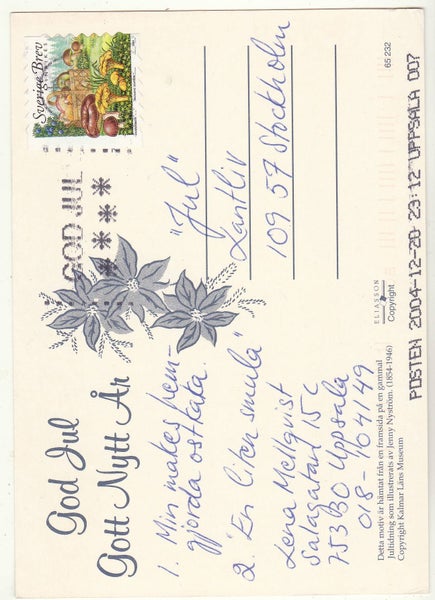 God Jul
Gott Nytt År
1. Min makes hem-
gjorda ostkaka.
2. "En liten smula"
Lena Mellqvist
Salagatan 15 C
753 30 Uppsala
018-104149
Detta motiv är hämtat från en framsida på en gammal
Jultidning som illustrerats av Jenny Nyström. (1854-1946)
Copyright Kalmar Läns Museum
ELIASSON
Copyright
GOD JUL
Sverige Brev
"Jul"
Lantliv
109 57 Stockholm
65 232
POSTEN 2004-12-20 23:12 UPPSALA 007